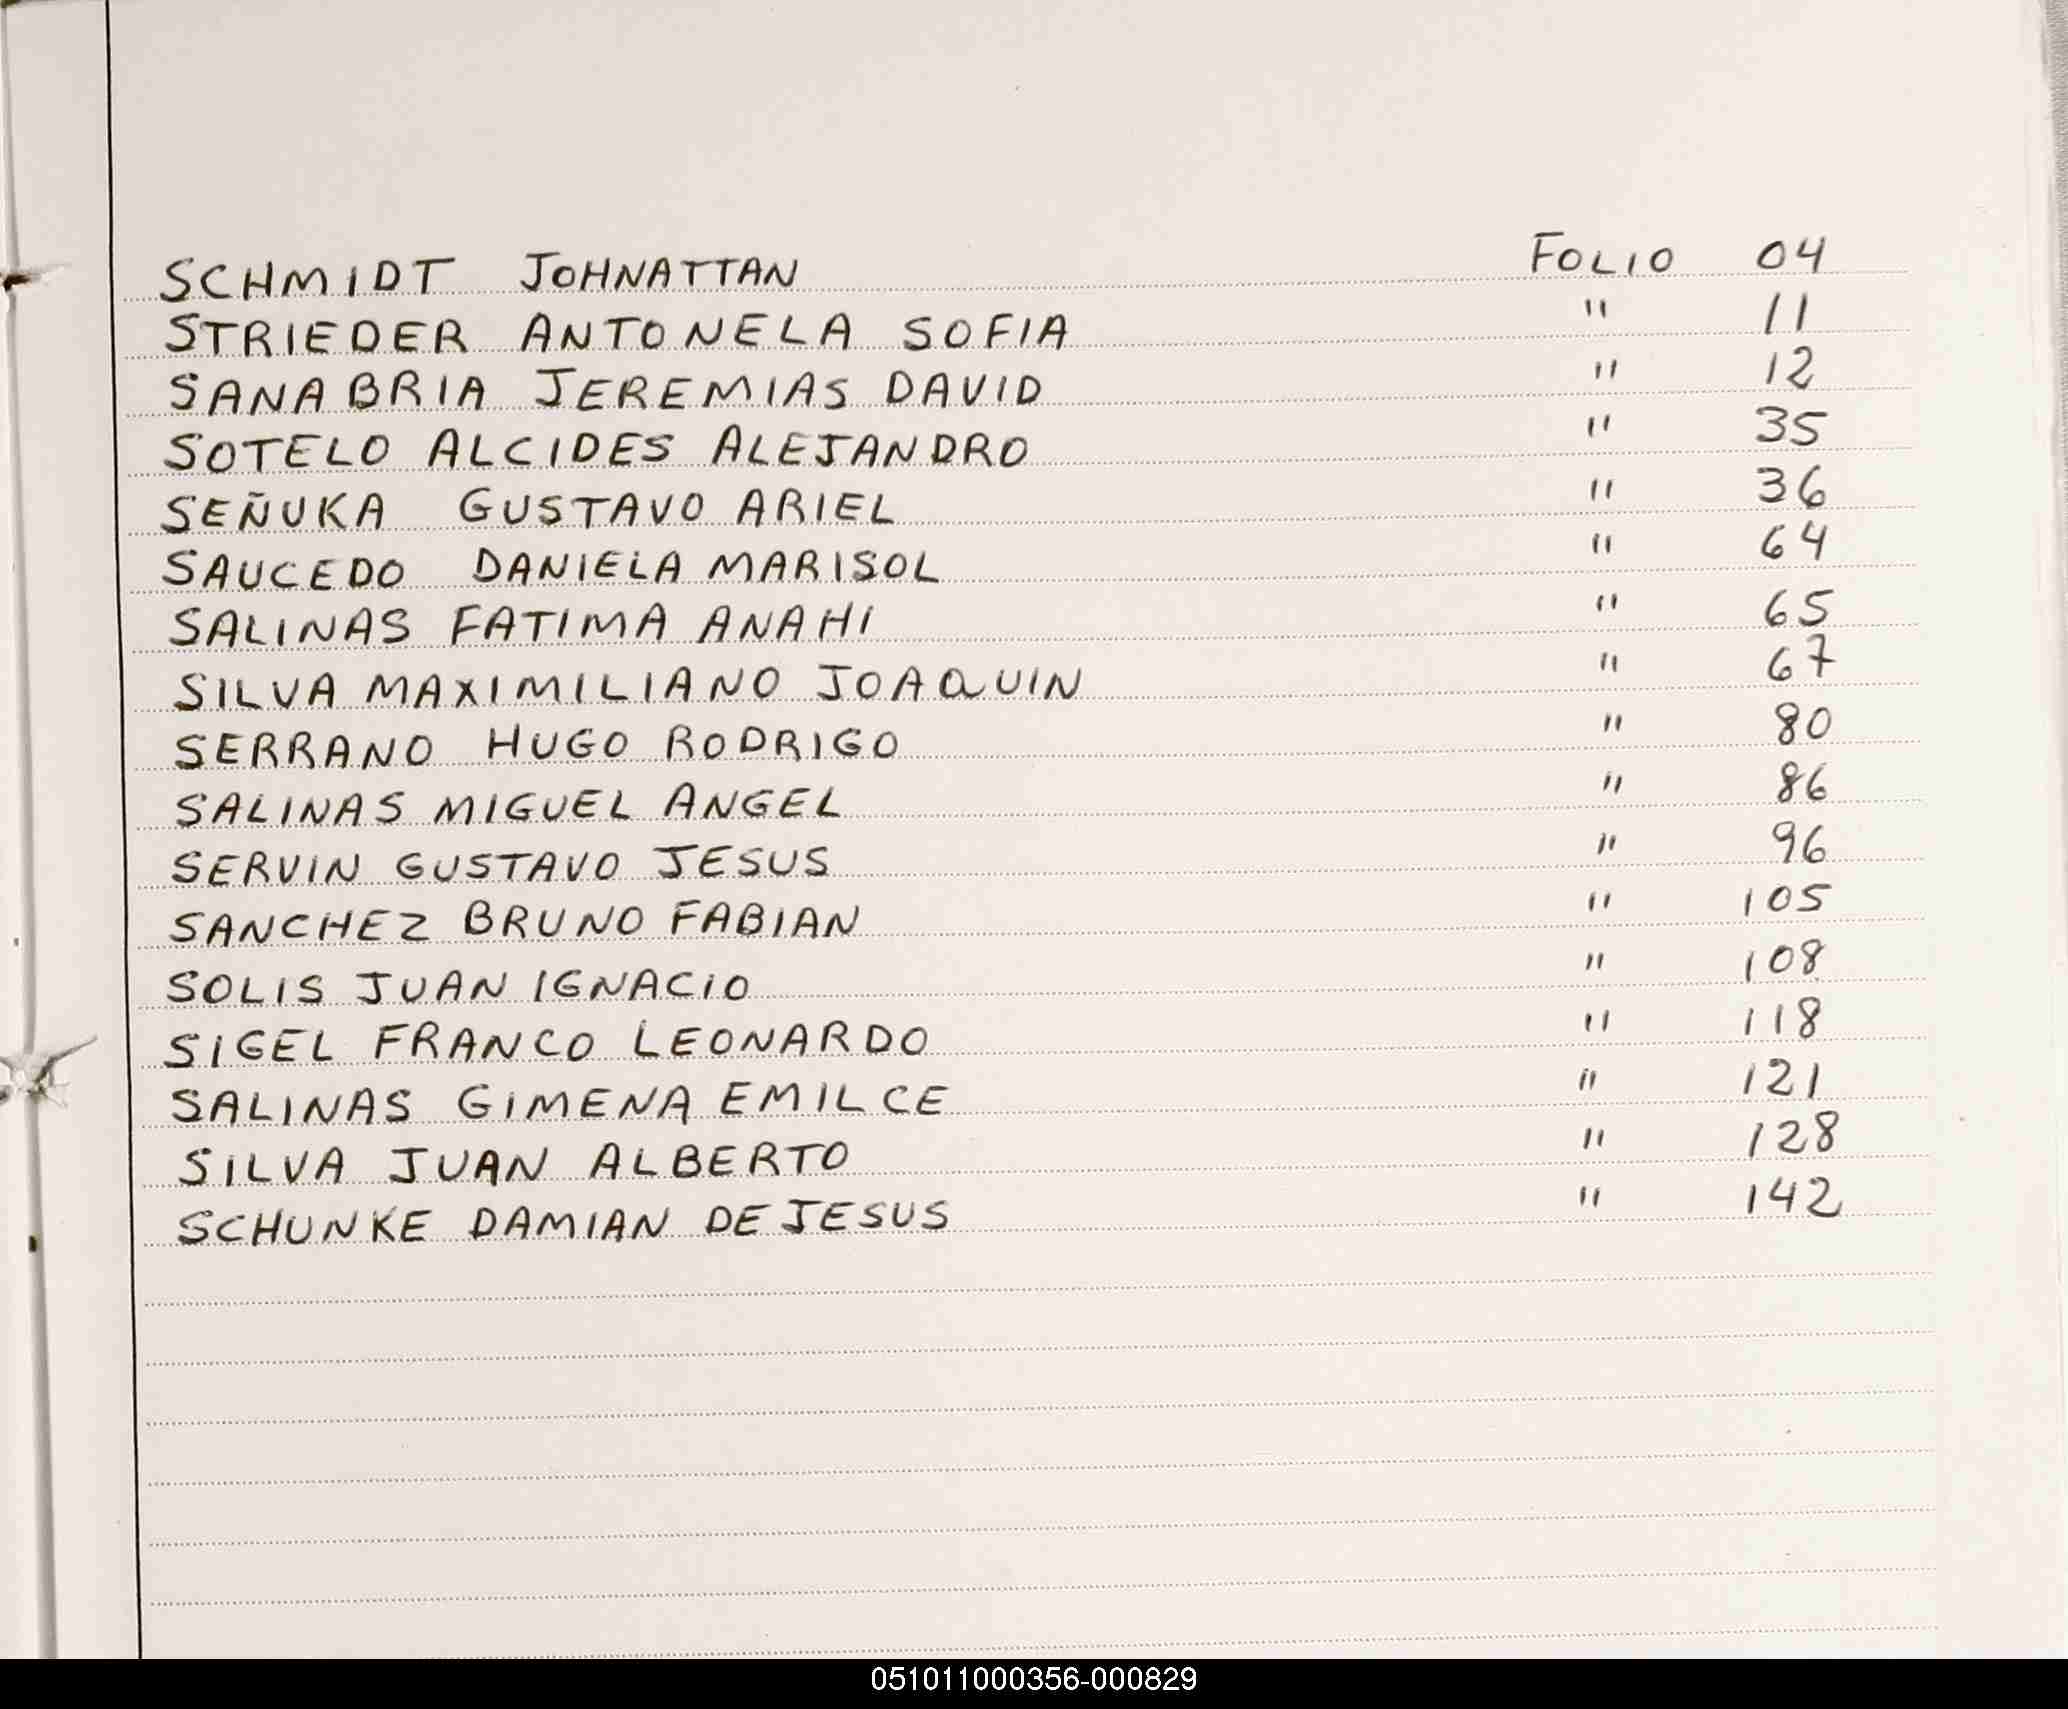 SCHMIDT JOHNATTAN FOLIO 04
STRIEDER ANTONELA SOFIA " 11
SANABRIA JEREMIAS DAVID " 12
SOTELO ALCIDES ALEJANDRO " 35
SEÑUKA GUSTAVO ARIEL " 36
SAUCEDO DANIELA MARISOL " 64
SALINAS FATIMA ANAHI " 65
SILVA MAXIMILIANO JOAQUIN " 67
SERRANO HUGO RODRIGO " 80
SALINAS MIGUEL ANGEL " 86
SERVIN GUSTAVO JESUS " 96
SANCHEZ BRUNO FABIAN " 105
SOLIS JUAN IGNACIO " 108
SIGEL FRANCO LEONARDO " 118
SALINAS GIMENA EMILCE " 121
SILVA JUAN ALBERTO " 128
SCHUNKE DAMIAN DE JESUS " 142
051011000356-000829